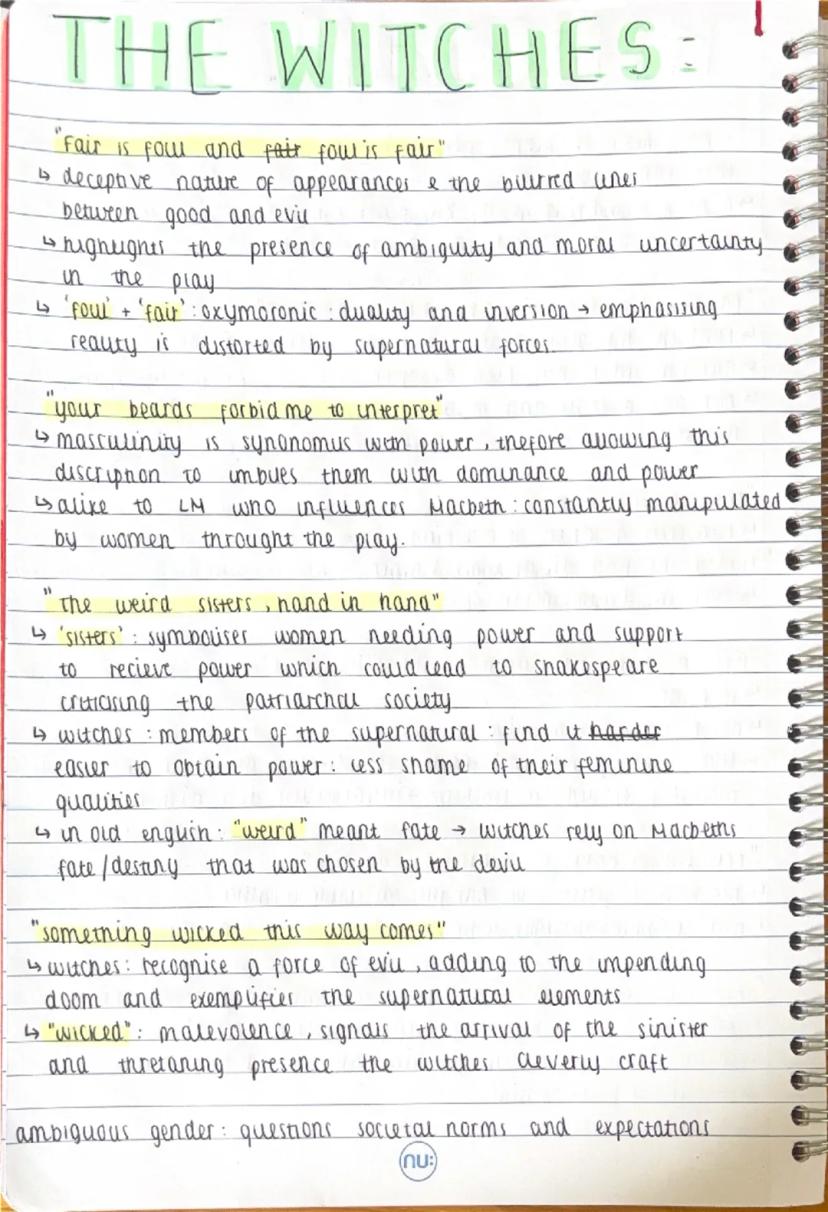 THE WITCHES:
"Fair is foul and fair foul is fair"
↳ deceptive nature of appearances & the blurred lines
between good and evil
↳ highlights the presence of ambiguity and moral uncertainty
in the play
↳ 'foul' + 'fair' : oxymoronic : duality and inversion → emphasising
reality is distorted by supernatural forces.
"your beards forbid me to interpret"
↳ masculinity is synonomus with power, thefore allowing this
discription to imbues them with dominance and power
↳ alike to LM who influences Macbeth : constantly manipulated
by women throught the play.
"The weird sisters, hand in hand"
↳ 'sisters' : symbolises women needing power and support
to recieve power which could lead to shakespeare
criticising the patriarchal society
↳ witches : members of the supernatural : find it harder
easier to obtain power : less shame of their feminine
qualities
↳ in old english : "weird" meant fate → witches rely on Macbeths
fate/destiny that was chosen by the devil
"something wicked this way comes"
↳ witches : recognise a force of evil, adding to the impending
doom and exemplifies the supernatural elements
↳ "wicked" : malevolence, signals the arrival of the sinister
and thretaning presence the witches cleverly craft
ambiguous gender : questions societal norms and expectations
nu: